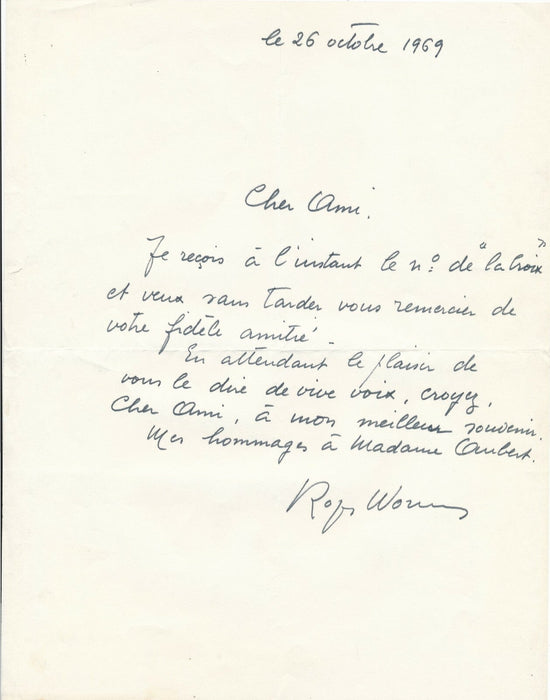 le 26 octobre 1969
Cher Ami.
Je reçois à l'instant le n° de "la Croix"
et veux sans tarder vous remercier de
votre fidèle amitié.
En attendant le plaisir de
vous le dire de vive voix, croyez,
Cher Ami, à mon meilleur souvenir.
Mes hommages à Madame Aubert.
Roger Worms